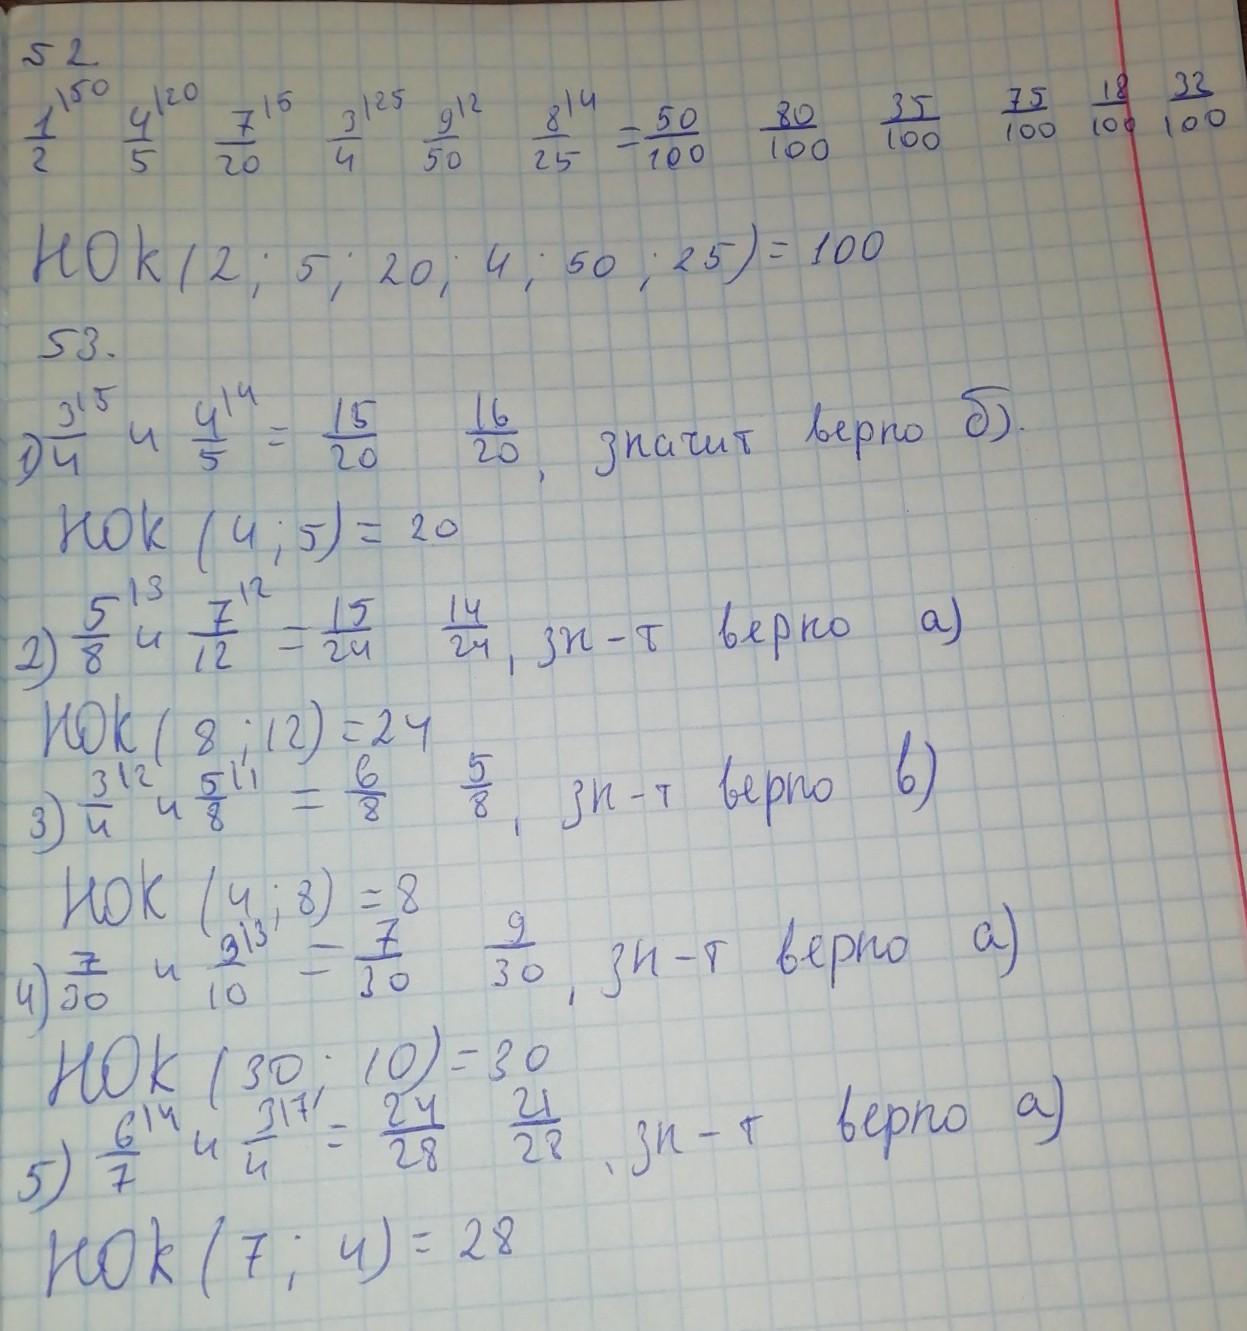 52.
1/2|50 4/5|20 7/20|5 3/4|25 9/50|2 8/25|4 = 50/100 80/100 35/100 75/100 18/100 32/100
НОК (2; 5; 20; 4; 50; 25) = 100
53.
1) 3/4|5 и 4/5|4 = 15/20 16/20, значит верно б).
НОК (4; 5) = 20
2) 5/8|3 и 7/12|2 = 15/24 14/24, зн-т верно а)
НОК (8; 12) = 24
3) 3/4|2 и 5/8|1 = 6/8 5/8, зн-т верно в)
НОК (4; 8) = 8
4) 7/30 и 9/10|3 = 7/30 9/30, зн-т верно а)
НОК (30; 10) = 30
5) 6/7|4 и 3/4|7 = 24/28 21/28, зн-т верно а)
НОК (7; 4) = 28